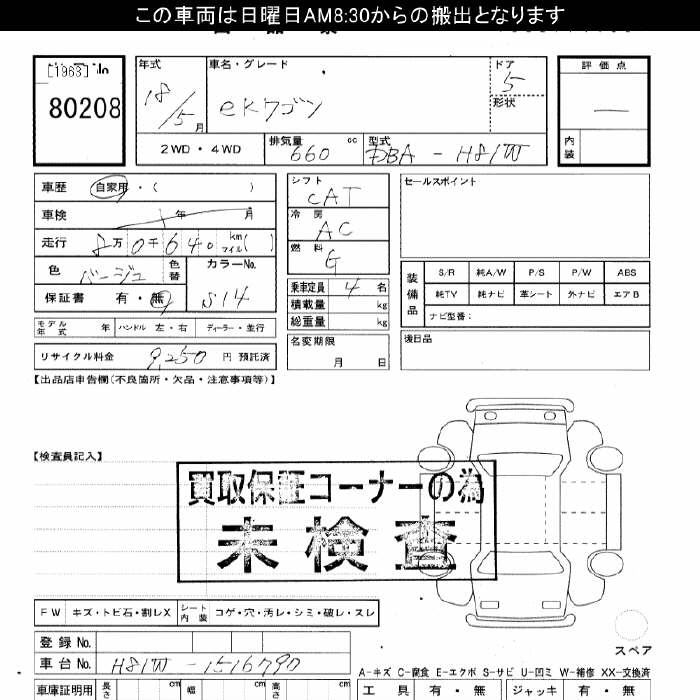 この車両は日曜日AM8:30からの搬出となります
[1963] No
80208
年式 車名・グレード ドア 評価点
18/5月 eKワゴン 5
形状
2WD・4WD 排気量 660 cc 型式 DBA - H81W 内装
車歴 自家用・( )
車検 年 月
走行 8万0千640 km マイル( )
色 ベージュ 色替 カラーNo. S14
保証書 有・無
モデル年式 年 ハンドル 左・右 ディーラー・並行
リサイクル料金 9,250 円 預託済
シフト CAT
冷房 AC
燃料 G
乗車定員 4 名
積載量 kg
総重量 kg
名変期限
月 日
セールスポイント
装備品 S/R 純A/W P/S P/W ABS
純TV 純ナビ 革シート 外ナビ エアB
ナビ型番:
後日品
【出品店申告欄(不良箇所・欠品・注意事項等)】
【検査員記入】
買取保証コーナーの為
未検査
FW キズ・トビ石・割レX シート内装 コゲ・穴・汚レ・シミ・破レ・スレ
登録No.
車台No. H81W - 1516790
スペア
A-キズ C-腐食 E-エクボ S-サビ U-凹ミ W-補修 XX-交換済
車庫証明用 長さ cm 幅 cm 高さ cm 工具 有・無 ジャッキ 有・無